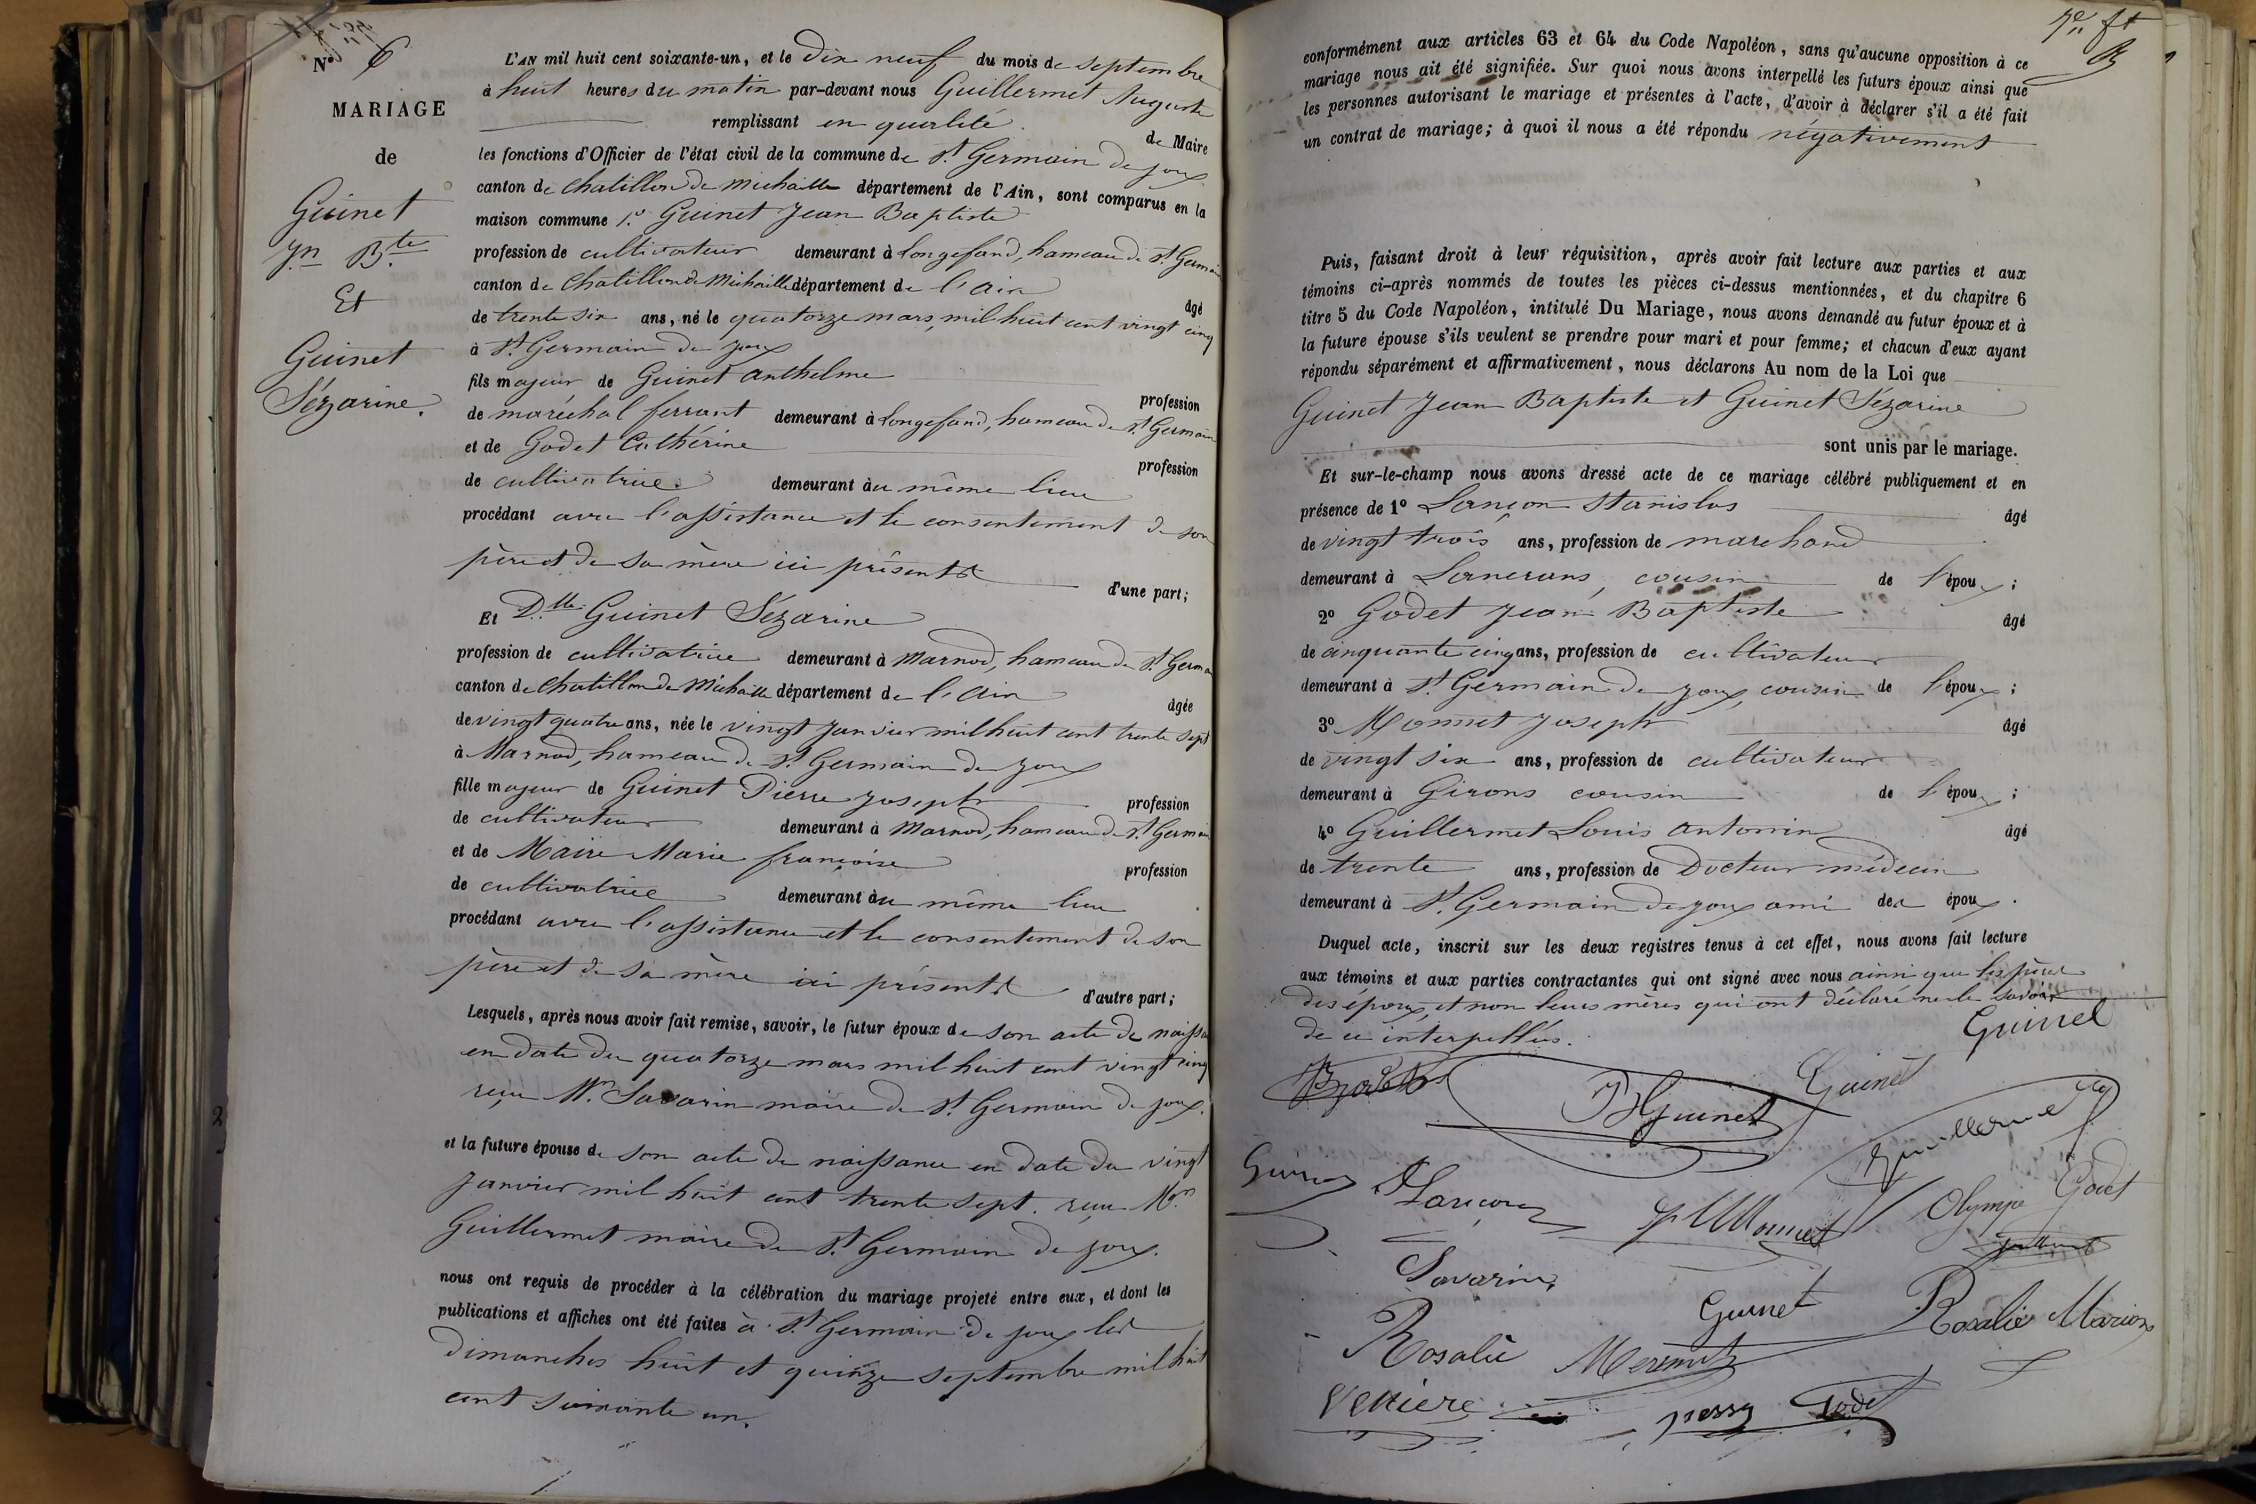 N° 6
MARIAGE
de
Guinet
Jn Bte
Et
Guinet
Sézarine.
L'AN mil huit cent soixante-un, et le dix neuf du mois de septembre
à huit heures du matin par-devant nous Guillermet Auguste
remplissant en qualité de Maire
les fonctions d'Officier de l'état civil de la commune de St Germain de joux
canton de Chatillon de Michaille département de l'Ain, sont comparus en la
maison commune 1° Guinet Jean Baptiste
profession de cultivateur demeurant à longefand, hameau de St Germain
canton de Chatillon de Michaille département de l'ain âgé
de trente six ans, né le quatorze mars, mil huit cent vingt cinq
à St Germain de joux
fils majeur de Guinet Anthelme profession
de maréchal ferrant demeurant à longefand, hameau de St Germain
et de Godet Cathérine profession
de cultivatrice demeurant au même lieu
procédant avec l'assistance et le consentement de son
père et de sa mère ici présents d'une part;
Et Dlle Guinet Sézarine
profession de cultivatrice demeurant à Marnod, hameau de St Germain
canton de Chatillon de Michaille département de l'ain âgée
de vingt quatre ans, née le vingt janvier mil huit cent trente sept
à Marnod, hameau de St Germain de joux
fille majeur de Guinet Pierre joseph profession
de cultivateur demeurant à Marnod, hameau de St Germain
et de Maire Marie françoise profession
de cultivatrice demeurant au même lieu
procédant avec l'assistance et le consentement de son
père et de sa mère ici présents d'autre part;
Lesquels, après nous avoir fait remise, savoir, le futur époux de son acte de naissa
en date du quatorze mars mil huit cent vingt cinq
reçu Mr. Savarin maire de St Germain de joux.
et la future épouse de son acte de naissance en date du vingt
janvier mil huit cent trente sept. reçu Mr
Guillermet maire de St Germain de joux.
nous ont requis de procéder à la célébration du mariage projeté entre eux, et dont les
publications et affiches ont été faites à St Germain de joux les
dimanches huit et quinze septembre mil huit
cent soixante un.
conformément aux articles 63 et 64 du Code Napoléon, sans qu'aucune opposition à ce
mariage nous ait été signifiée. Sur quoi nous avons interpellé les futurs époux ainsi que
les personnes autorisant le mariage et présentes à l'acte, d'avoir à déclarer s'il a été fait
un contrat de mariage; à quoi il nous a été répondu négativement
Puis, faisant droit à leur réquisition, après avoir fait lecture aux parties et aux
témoins ci-après nommés de toutes les pièces ci-dessus mentionnées, et du chapitre 6
titre 5 du Code Napoléon, intitulé Du Mariage, nous avons demandé au futur époux et à
la future épouse s'ils veulent se prendre pour mari et pour femme; et chacun d'eux ayant
répondu séparément et affirmativement, nous déclarons Au nom de la Loi que
Guinet Jean Baptiste et Guinet Sézarine
sont unis par le mariage.
Et sur-le-champ nous avons dressé acte de ce mariage célébré publiquement et en
présence de 1° Lançon Stanislas âgé
de vingt trois ans, profession de marchand
demeurant à Lancrans, cousin de l'époux;
2° Godet Jean Baptiste âgé
de cinquante cinq ans, profession de cultivateur
demeurant à St Germain de joux, cousin de l'époux;
3° Monnet Joseph âgé
de vingt six ans, profession de cultivateur
demeurant à Girons cousin de l'époux;
4° Guillermet Louis Antonin âgé
de trente ans, profession de Docteur médecin
demeurant à St Germain de joux ami des époux.
Duquel acte, inscrit sur les deux registres tenus à cet effet, nous avons fait lecture
aux témoins et aux parties contractantes qui ont signé avec nous ainsi que les pères
des époux, et non leurs mères qui ont déclaré ne le savoir
de ce interpellés.
Guinet
JBGuinet Guinet
Guillermet
Lançon Monnet Olympe Godet
Savarin
Guinet Rosalie Marion
Rosalie Mermet
Godet